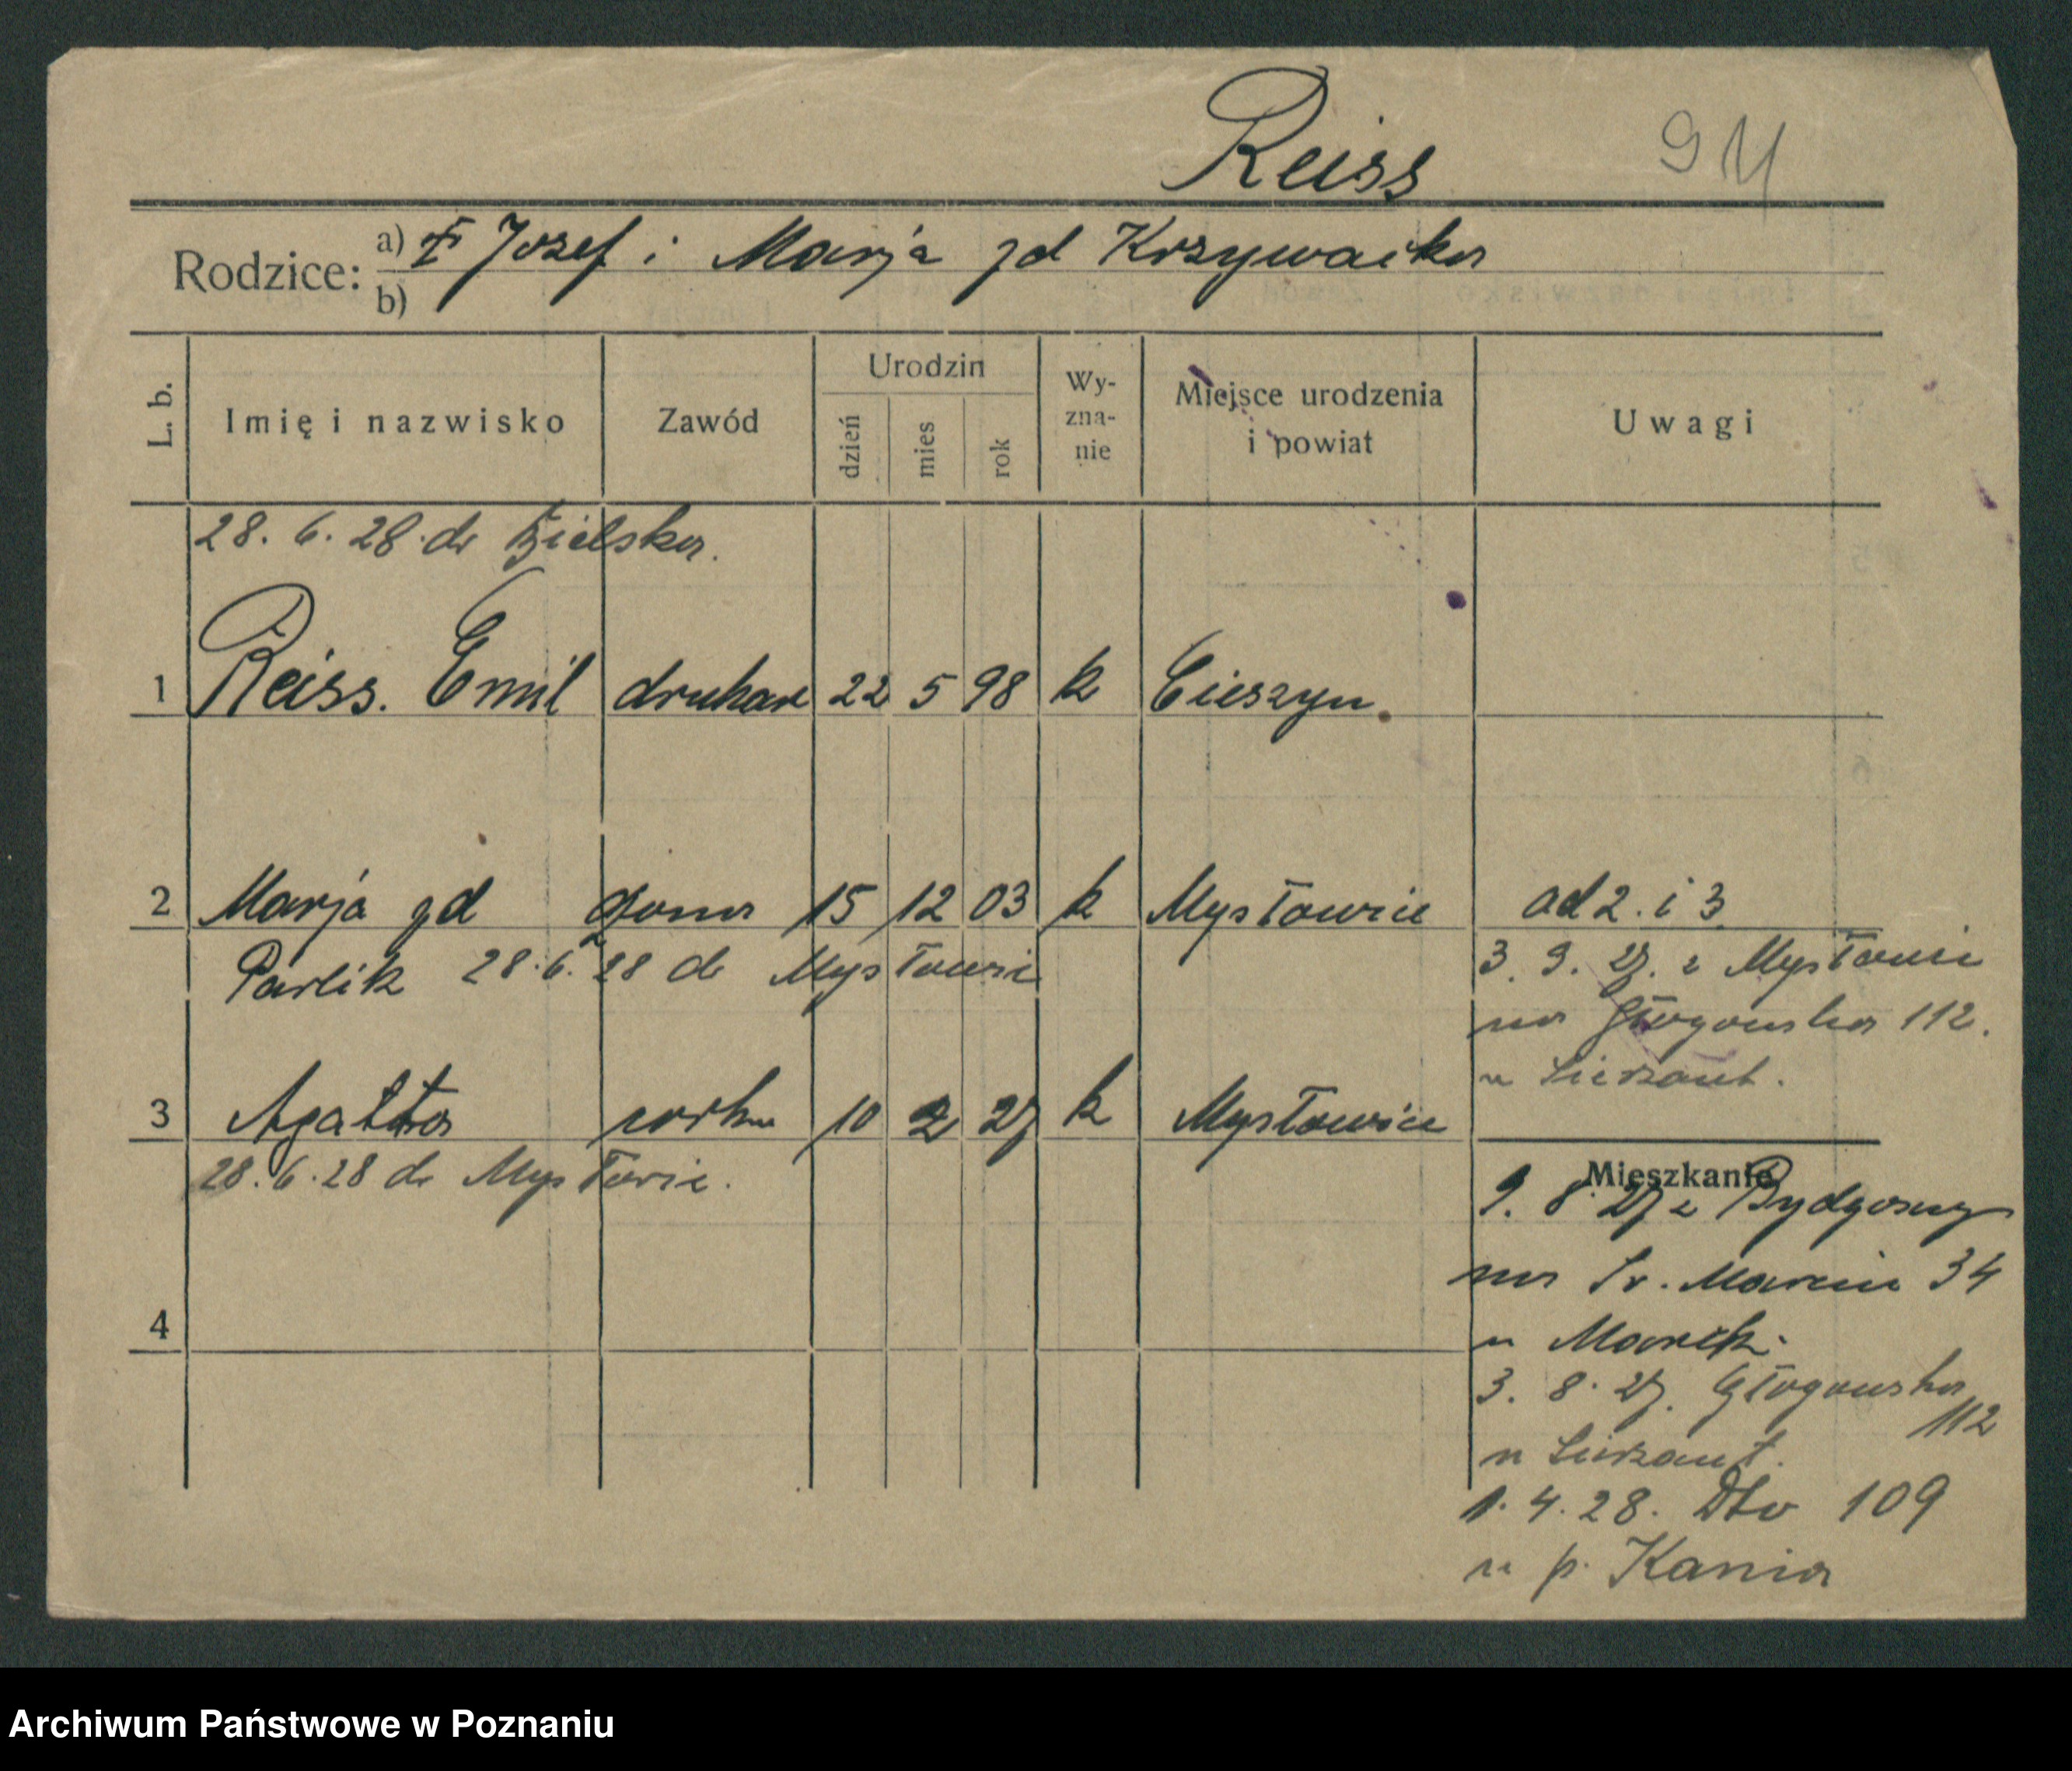 Reiss 911
Rodzice: a) Jozef i Marja zd Krzywacka
b)
L. b. Imię i nazwisko Zawód Urodzin dzień mies rok Wy-zna-nie Miejsce urodzenia i powiat Uwagi
28. 6. 28. do Bielska.
1 Reiss. Emil drukarz 22 5 98 k Cieszyn.
2 Marja zd żona 15 12 03 k Mysłowice ad 2. i 3
Pavlik 28. 6. 28 do Mysłowic
3. 9. 27. z Mysłowic
na Głogowska 112.
u
3 Agatha corka 10 2 27 k Mysłowice
28. 6. 28 do Mysłowic.
Mieszkanie
9. 8 27 z Bydgoszcz
na Sw. Marcin 34
u Marek.
3. 8. 27. Głogowska
112
u
1. 4. 28. Dto 109
u p. Kania
4
Archiwum Państwowe w Poznaniu